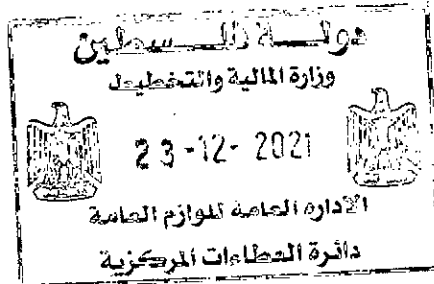 دولة فلسطين
وزارة المالية والتخطيط
23-12-2021
الإدارة العامة للوازم العامة
دائرة العطاءات المركزية